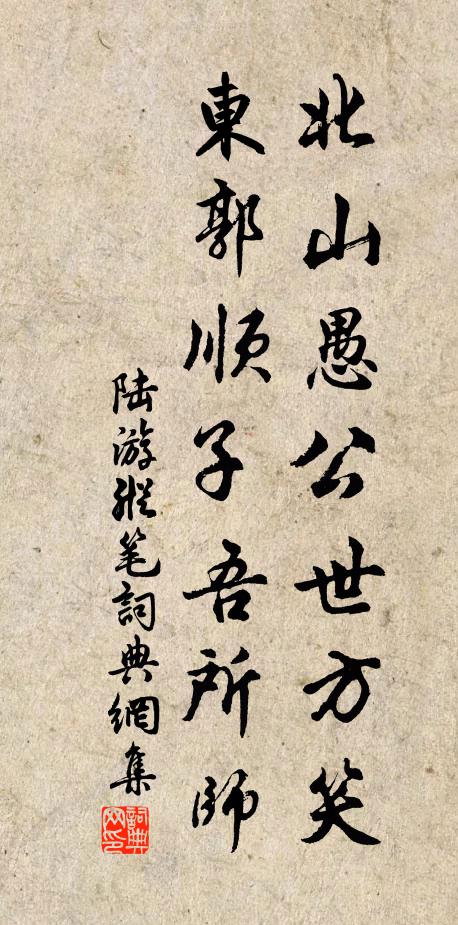 北山愚公世方笑
東郭順子吾所師
陆游縱笔詞典網集
詞典网印